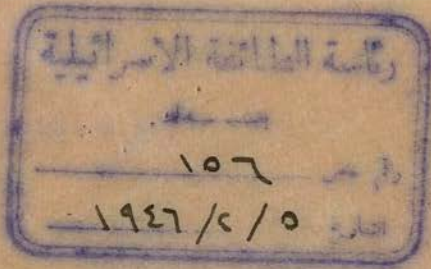 رئاسة الطائفة الاسرائيلية
رقم ١٥٦
التاريخ ٥/٢/١٩٤٦